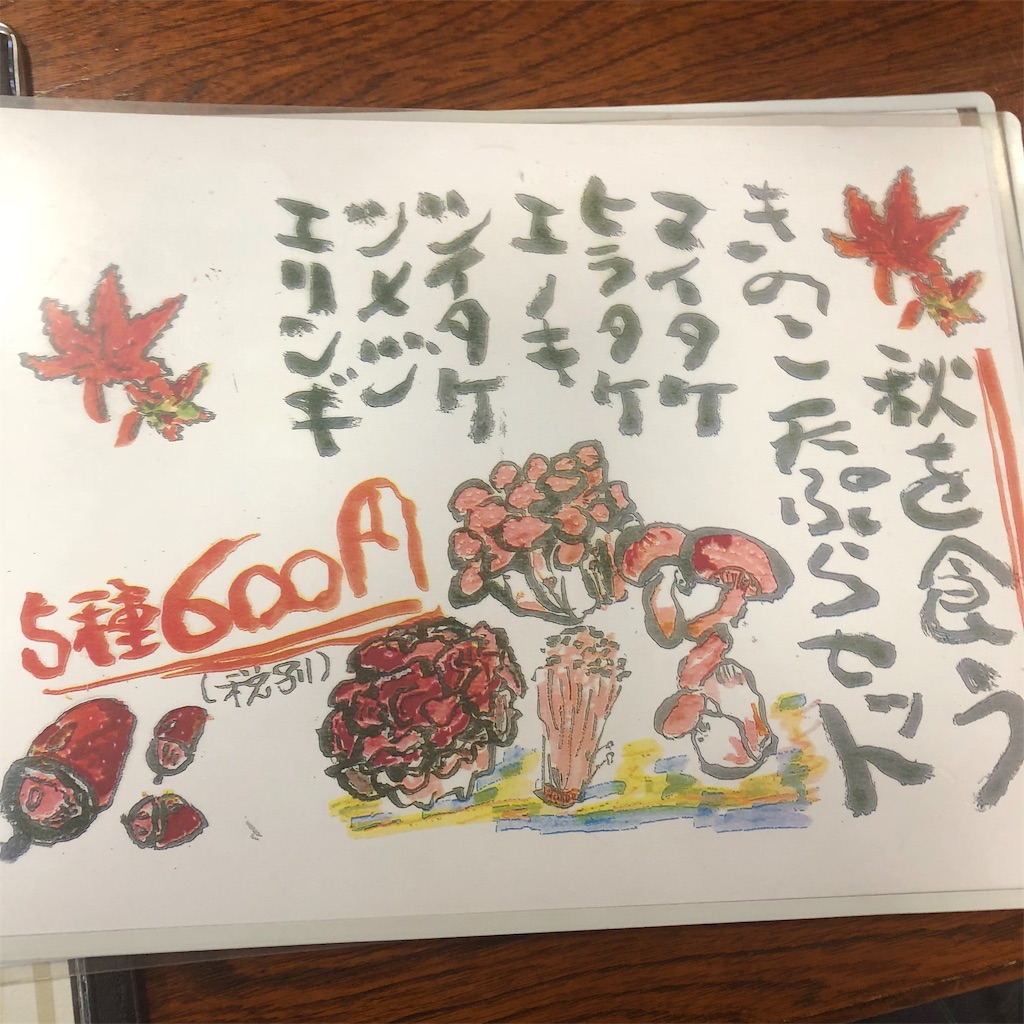 秋を食う
きのこ天ぷらセット
マイタケ
ヒラタケ
エノキ
シイタケ
シメジ
エリンギ
5種600円
(税別)